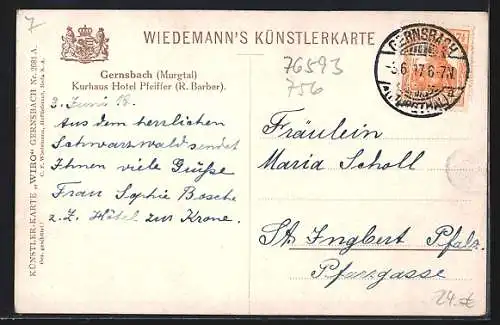 7
WIEDEMANN'S KÜNSTLERKARTE
Gernsbach (Murgtal)
Kurhaus Hotel Pfeiffer (R. Barber).
76593
756
GERNSBACH
-3.6.17.6-7N
a
(MURGTHAL)
3. Juni 17.
Aus dem herrlichen
Schwarzwald sendet
Ihnen viele Grüße
Frau Sophie Bosche
z. Z. Hôtel zur Krone.
Fräulein
Maria Scholl
St. Ingbert Pfalz.
Pfarrgasse
24.-€
KÜNSTLER-KARTE „WIRO" GERNSBACH Nr. 2081 A.